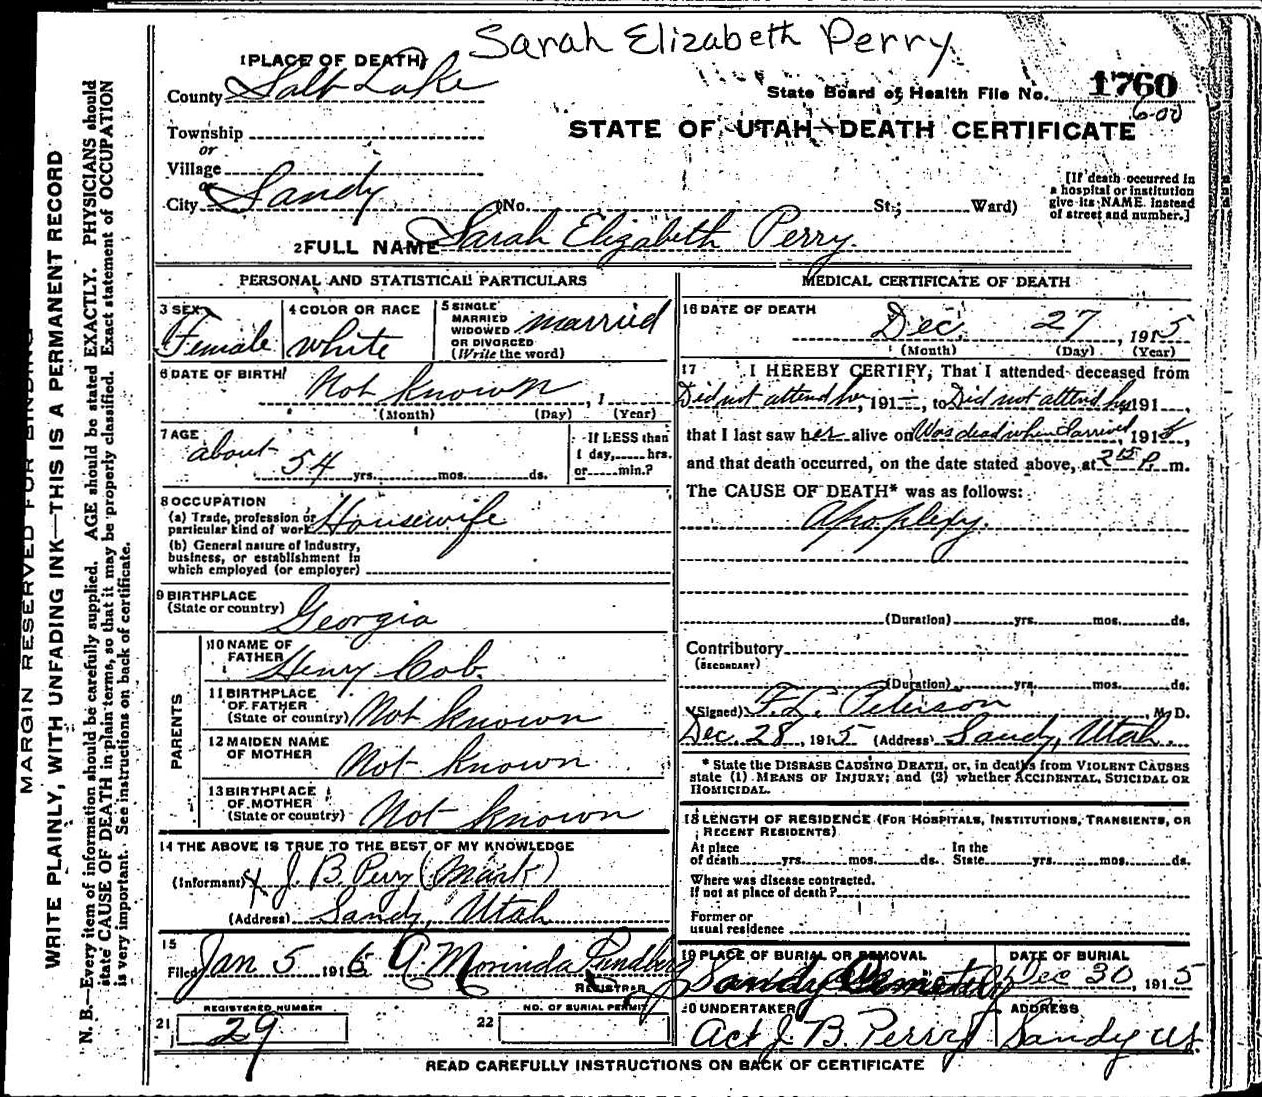 Sarah Elizabeth Perry.
1 PLACE OF DEATH
County Salt Lake
State Board of Health File No. 1760
6-00
Township
or
STATE OF UTAH—DEATH CERTIFICATE
Village
or
City Sandy No. St.; Ward)
[If death occurred in
a hospital or institution
give its NAME instead
of street and number.]
2 FULL NAME Sarah Elizabeth Perry.
PERSONAL AND STATISTICAL PARTICULARS
3 SEX Female
4 COLOR OR RACE White
5 SINGLE
MARRIED
WIDOWED
OR DIVORCED
(Write the word) married
6 DATE OF BIRTH Not Known, 1
(Month) (Day) (Year)
7 AGE about 54 yrs. mos. ds.
If LESS than
1 day, hrs.
or min.?
8 OCCUPATION
(a) Trade, profession or
particular kind of work Housewife
(b) General nature of industry,
business, or establishment in
which employed (or employer)
9 BIRTHPLACE
(State or country) Georgia
PARENTS
10 NAME OF
FATHER Henry Cob.
11 BIRTHPLACE
OF FATHER
(State or country) Not Known
12 MAIDEN NAME
OF MOTHER Not Known
13 BIRTHPLACE
OF MOTHER
(State or country) Not Known
14 THE ABOVE IS TRUE TO THE BEST OF MY KNOWLEDGE
(Informant) X J. B. Perry (Mark)
(Address) Sandy, Utah
15
Filed Jan 5 1916 A. Morinda
REGISTRAR
REGISTERED NUMBER
21 29
NO. OF BURIAL PERMIT
22
MEDICAL CERTIFICATE OF DEATH
16 DATE OF DEATH
Dec. 27, 1915
(Month) (Day) (Year)
17 I HEREBY CERTIFY, That I attended deceased from
Did not attend her, 191—, to Did not attend her 191,
that I last saw her alive on Was dead when I arrived, 1915,
and that death occurred, on the date stated above, at 2 15 P. m.
The CAUSE OF DEATH* was as follows:
Apoplexy.
(Duration) yrs. mos. ds.
Contributory
(SECONDARY)
(Duration) yrs. mos. ds.
(Signed) F. L. Peterson, M. D.
Dec. 28, 1915 (Address) Sandy, Utah.
* State the DISEASE CAUSING DEATH, or, in deaths from VIOLENT CAUSES
state (1) MEANS OF INJURY; and (2) whether ACCIDENTAL, SUICIDAL OR
HOMICIDAL.
18 LENGTH OF RESIDENCE (FOR HOSPITALS, INSTITUTIONS, TRANSIENTS, OR
RECENT RESIDENTS)
At place
of death yrs. mos. ds.
In the
State yrs. mos. ds.
Where was disease contracted.
If not at place of death?
Former or
usual residence
19 PLACE OF BURIAL OR REMOVAL
Sandy Cemetery
DATE OF BURIAL
Dec 30, 1915
20 UNDERTAKER
Act J. B. Perry
ADDRESS
Sandy Ut.
READ CAREFULLY INSTRUCTIONS ON BACK OF CERTIFICATE
MARGIN RESERVED FOR BINDING
WRITE PLAINLY, WITH UNFADING INK—THIS IS A PERMANENT RECORD
N. B.—Every item of information should be carefully supplied. AGE should be stated EXACTLY. PHYSICIANS should
state CAUSE OF DEATH in plain terms, so that it may be properly classified. Exact statement of OCCUPATION
is very important. See instructions on back of certificate.